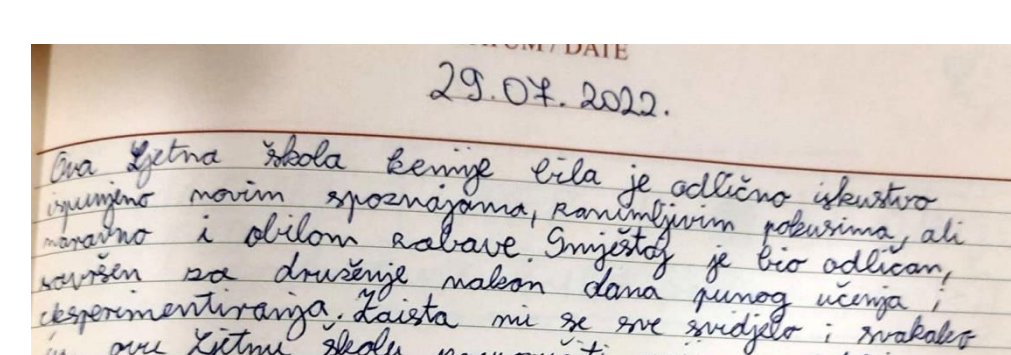 DATUM / DATE
29.07.2022.
Ova Ljetna škola kemije bila je odlično iskustvo
ispunjeno novim spoznajama, zanimljivim pokusima, ali
naravno i obilom zabave. Smještaj je bio odličan,
savršen za druženje nakon dana punog učenja i
eksperimentiranja. Zaista mi se sve svidjelo i svakako
ovu Ljetnu školu